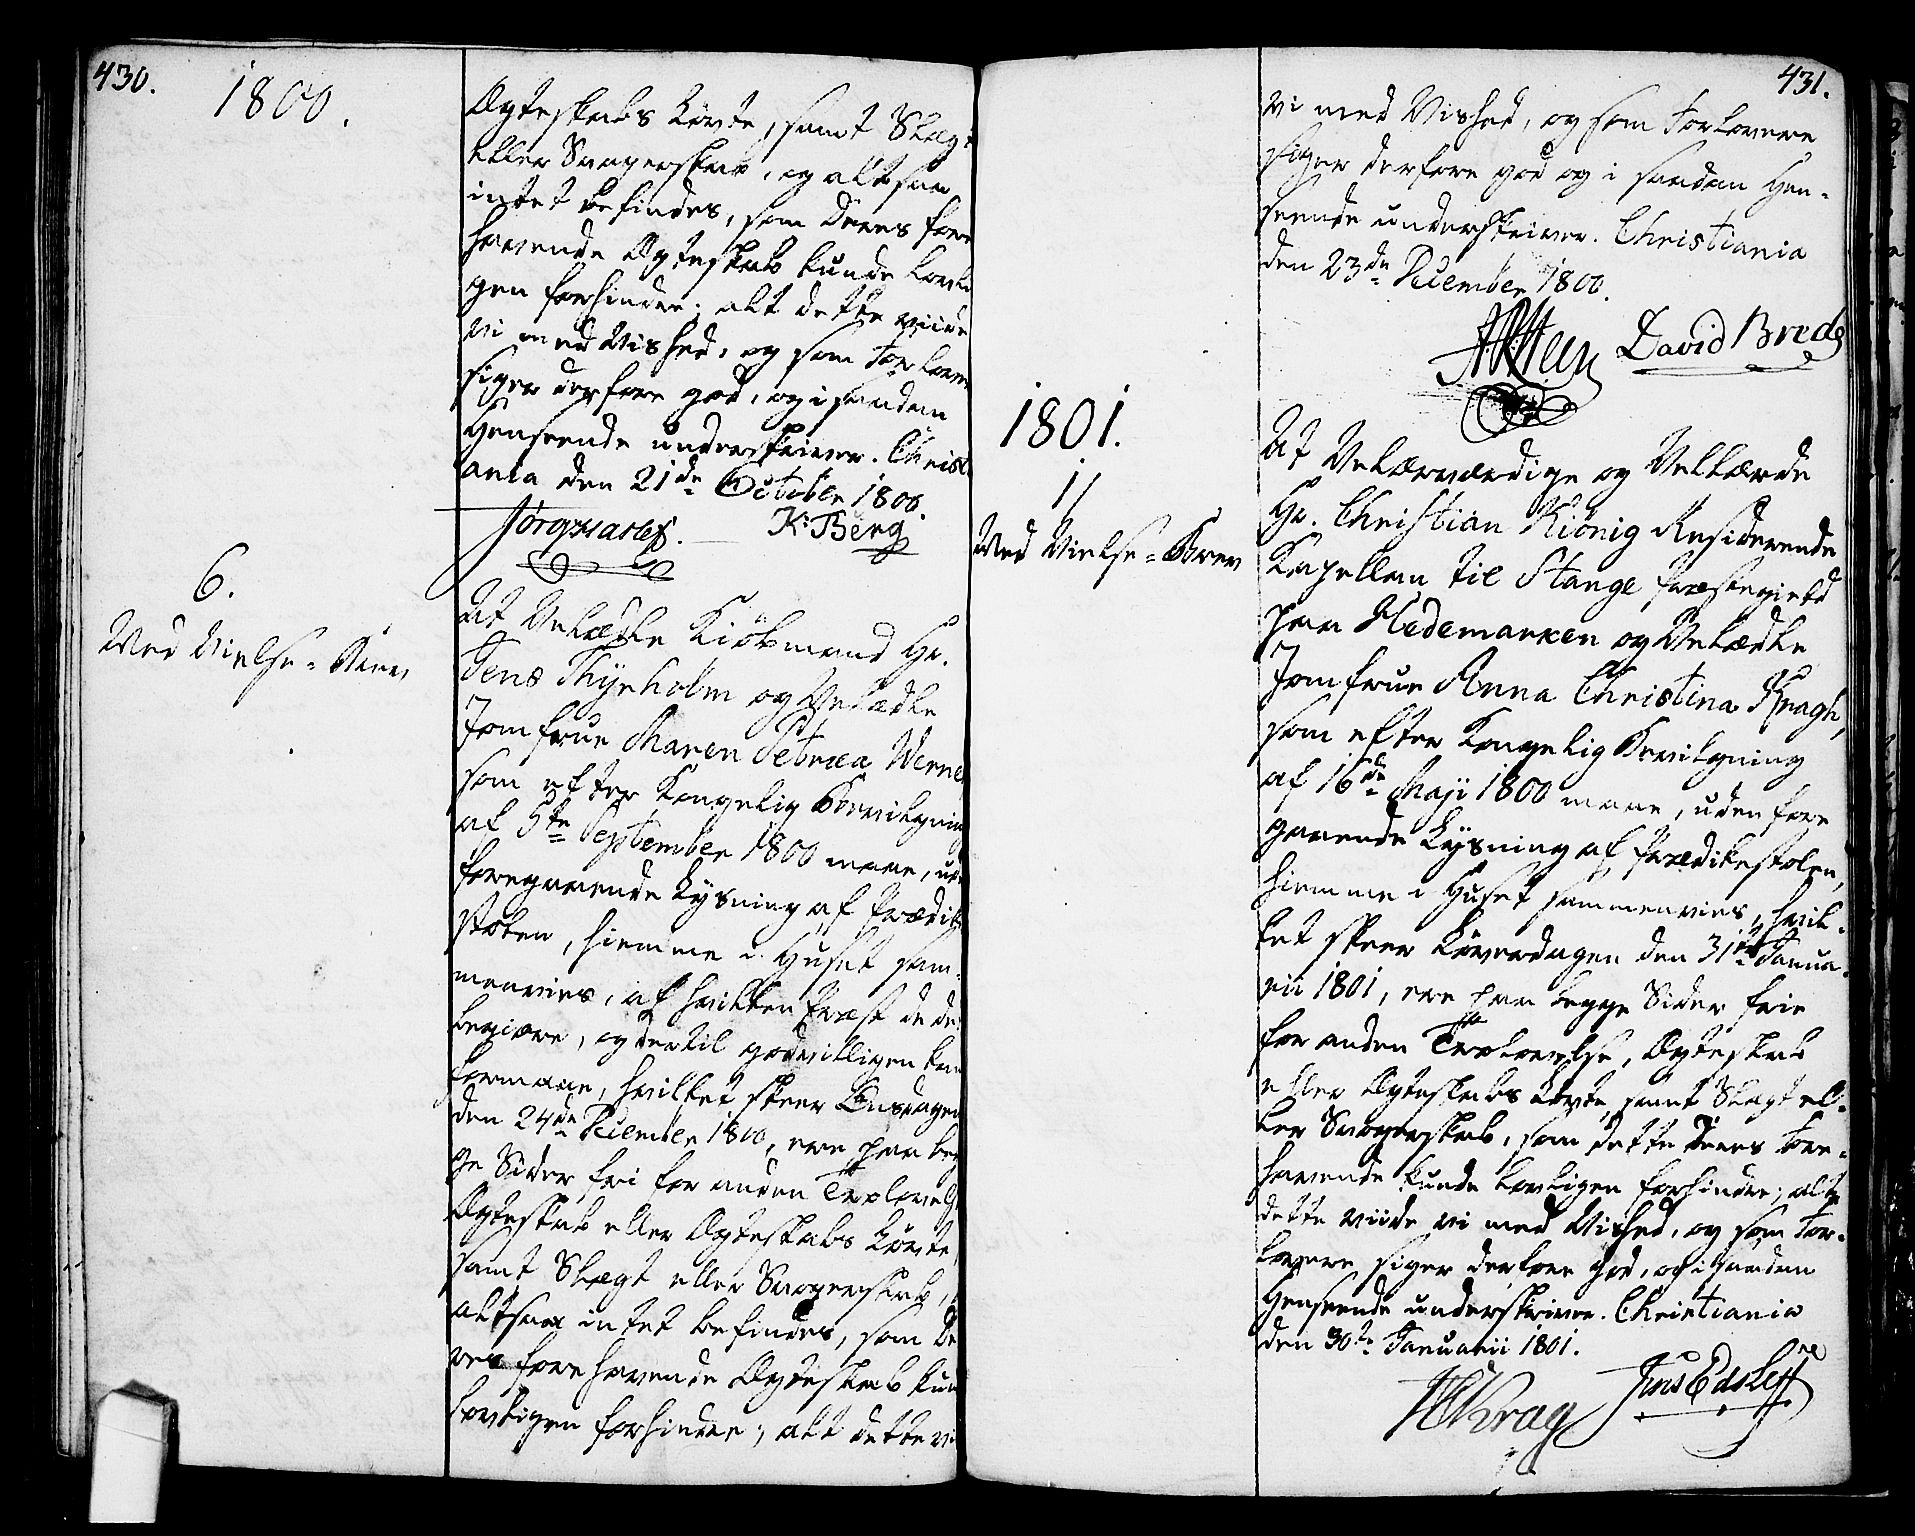 430.
1800.
Ægteskabs Løvte, samt Slægt
eller Svogerskab, og altsaa
intet befindes, som Deres fore
havende Ægteskab kunde lovli
gen forhindre; alt dette viide
vi med Vished, og som Forlovere
siger derfore god, og i saadan
Henseende underskriver. Christi
ania den 21de October 1800.
K: Berg
6.
Med Vielse-Brev
At Velædle Kiøbmand Hr.
Jens Thÿnholm og Velædle
Jomfrue Maren Petræa Werne
som efter Kongelig Bevilgning
af 5te September 1800 maae, uden
foregaaende Lysning af Prædike
stolen, hiemme i Huset sam-
menvies, af hvilken Præst de det
begiære, og dertil godvilligen kan
formaae, hvilket skeer Onsdagen
den 24de December 1800, ere paa beg
ge Sider fri for anden Trolovelse
Ægteskab eller Ægteskabs Løvte,
samt Slægt eller Svogerskab,
altsaa intet befindes, som De
res forehavende Ægteskab kunde
lovligen forhindre; alt dette vi
431.
vi med Vished, og som Forlovere
siger derfore god og i saadan Hen-
seende underskriver. Christiania
den 23de December 1800.
David Brede
1801.
1/
Med Vielse-Brev
At Velærværdige og Vellærde
Hr. Christian Kiönig Residerende
Kapellan til Stange Præstegield
paa Hedemarken og Velædle
Jomfrue Anna Christina Kragh,
som efter Kongelig Bevilgning
af 16de Maji 1800 maae, uden fore
gaaende Lysning af Prædikestolen,
hiemme i Huset sammenvies, hvil-
ket skeer Løverdagen den 31te Janua-
rii 1801, ere paa begge Sider frie
for anden Trolovelse, Ægteskab
eller Ægteskabs Løvte, samt Slægt el-
ler Svogerskab, som dette Deres Fore-
havende kunde lovligen forhindre; alt
dette viide vi med Vished, og som For-
lovere siger derfore god, og i saadan
Henseende underskriver. Christiania
den 30te Januarii 1801.
Krag
Jens Edsleff